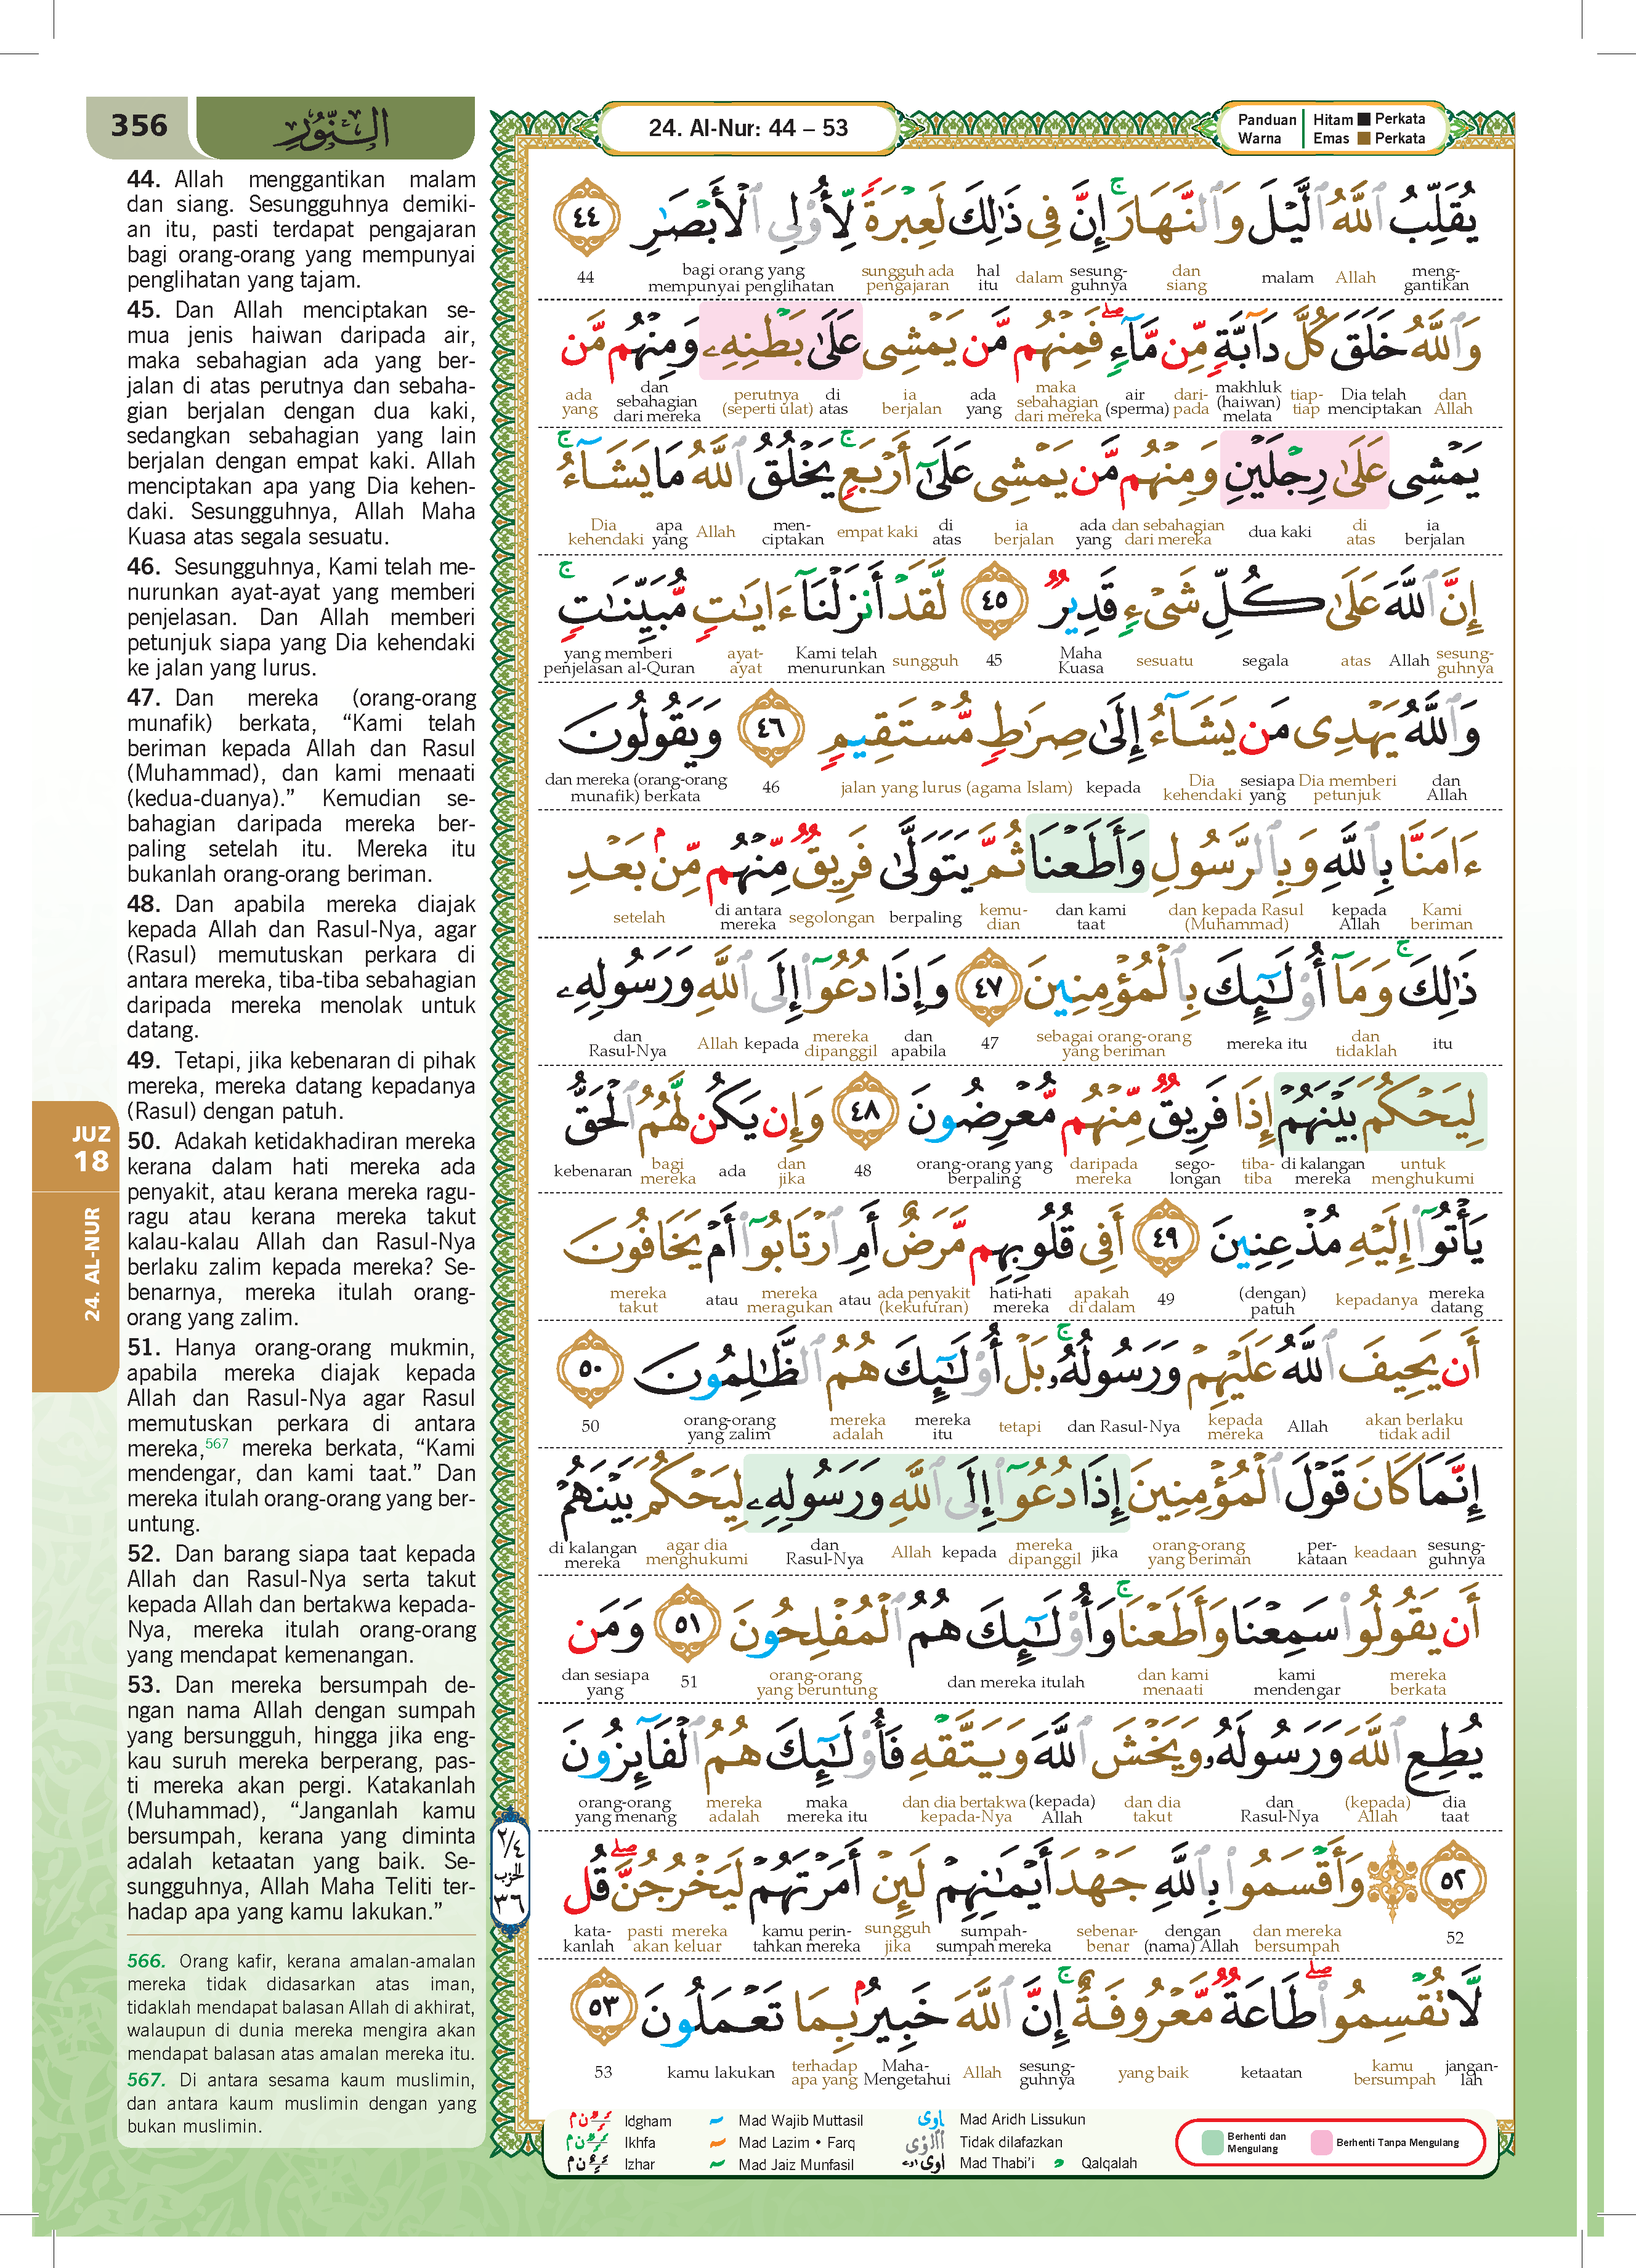 356
النور
24. Al-Nur: 44 – 53
Panduan Warna
Hitam Perkata
Emas Perkata
44. Allah menggantikan malam
dan siang. Sesungguhnya demiki-
an itu, pasti terdapat pengajaran
bagi orang-orang yang mempunyai
penglihatan yang tajam.
45. Dan Allah menciptakan se-
mua jenis haiwan daripada air,
maka sebahagian ada yang ber-
jalan di atas perutnya dan sebaha-
gian berjalan dengan dua kaki,
sedangkan sebahagian yang lain
berjalan dengan empat kaki. Allah
menciptakan apa yang Dia kehen-
daki. Sesungguhnya, Allah Maha
Kuasa atas segala sesuatu.
46. Sesungguhnya, Kami telah me-
nurunkan ayat-ayat yang memberi
penjelasan. Dan Allah memberi
petunjuk siapa yang Dia kehendaki
ke jalan yang lurus.
47. Dan mereka (orang-orang
munafik) berkata, “Kami telah
beriman kepada Allah dan Rasul
(Muhammad), dan kami menaati
(kedua-duanya).” Kemudian se-
bahagian daripada mereka ber-
paling setelah itu. Mereka itu
bukanlah orang-orang beriman.
48. Dan apabila mereka diajak
kepada Allah dan Rasul-Nya, agar
(Rasul) memutuskan perkara di
antara mereka, tiba-tiba sebahagian
daripada mereka menolak untuk
datang.
49. Tetapi, jika kebenaran di pihak
mereka, mereka datang kepadanya
(Rasul) dengan patuh.
50. Adakah ketidakhadiran mereka
kerana dalam hati mereka ada
penyakit, atau kerana mereka ragu-
ragu atau kerana mereka takut
kalau-kalau Allah dan Rasul-Nya
berlaku zalim kepada mereka? Se-
benarnya, mereka itulah orang-
orang yang zalim.
51. Hanya orang-orang mukmin,
apabila mereka diajak kepada
Allah dan Rasul-Nya agar Rasul
memutuskan perkara di antara
mereka,567 mereka berkata, “Kami
mendengar, dan kami taat.” Dan
mereka itulah orang-orang yang ber-
untung.
52. Dan barang siapa taat kepada
Allah dan Rasul-Nya serta takut
kepada Allah dan bertakwa kepada-
Nya, mereka itulah orang-orang
yang mendapat kemenangan.
53. Dan mereka bersumpah de-
ngan nama Allah dengan sumpah
yang bersungguh, hingga jika eng-
kau suruh mereka berperang, pas-
ti mereka akan pergi. Katakanlah
(Muhammad), “Janganlah kamu
bersumpah, kerana yang diminta
adalah ketaatan yang baik. Se-
sungguhnya, Allah Maha Teliti ter-
hadap apa yang kamu lakukan.”
566. Orang kafir, kerana amalan-amalan
mereka tidak didasarkan atas iman,
tidaklah mendapat balasan Allah di akhirat,
walaupun di dunia mereka mengira akan
mendapat balasan atas amalan mereka itu.
567. Di antara sesama kaum muslimin,
dan antara kaum muslimin dengan yang
bukan muslimin.
JUZ
18
24. AL-NUR
يُقَلِّبُ ٱللَّهُ ٱلَّيْلَ وَٱلنَّهَارَ ۚ إِنَّ فِى ذَٰلِكَ لَعِبْرَةً لِّأُو۟لِى ٱلْأَبْصَٰرِ ٤٤
meng-gantikan Allah malam dan siang sesung-guhnya dalam hal itu sungguh ada pengajaran bagi orang yang mempunyai penglihatan 44
وَٱللَّهُ خَلَقَ كُلَّ دَآبَّةٍ مِّن مَّآءٍ ۖ فَمِنْهُم مَّن يَمْشِى عَلَىٰ بَطْنِهِۦ وَمِنْهُم مَّن
dan Allah Dia telah menciptakan tiap-tiap makhluk (haiwan) melata dari-pada air (sperma) maka sebahagian dari mereka ada yang ia berjalan di atas perutnya (seperti ulat) dan sebahagian dari mereka ada yang
يَمْشِى عَلَىٰ رِجْلَيْنِ وَمِنْهُم مَّن يَمْشِى عَلَىٰٓ أَرْبَعٍ ۚ يَخْلُقُ ٱللَّهُ مَا يَشَآءُ ۚ
ia berjalan di atas dua kaki dan sebahagian dari mereka ada yang ia berjalan di atas empat kaki men-ciptakan Allah apa yang Dia kehendaki
إِنَّ ٱللَّهَ عَلَىٰ كُلِّ شَىْءٍ قَدِيرٌ ٤٥ لَّقَدْ أَنزَلْنَآ ءَايَٰتٍ مُّبَيِّنَٰتٍ ۚ
sesung-guhnya Allah atas segala sesuatu Maha Kuasa 45 sungguh Kami telah menurunkan ayat-ayat yang memberi penjelasan al-Quran
وَٱللَّهُ يَهْدِى مَن يَشَآءُ إِلَىٰ صِرَٰطٍ مُّسْتَقِيمٍ ٤٦ وَيَقُولُونَ
dan Allah Dia memberi petunjuk sesiapa yang Dia kehendaki kepada jalan yang lurus (agama Islam) 46 dan mereka (orang-orang munafik) berkata
ءَامَنَّا بِٱللَّهِ وَبِٱلرَّسُولِ وَأَطَعْنَا ثُمَّ يَتَوَلَّىٰ فَرِيقٌ مِّنْهُم مِّنۢ بَعْدِ
Kami beriman kepada Allah dan kepada Rasul (Muhammad) dan kami taat kemu-dian berpaling segolongan di antara mereka setelah
ذَٰلِكَ ۚ وَمَآ أُو۟لَٰٓئِكَ بِٱلْمُؤْمِنِينَ ٤٧ وَإِذَا دُعُوٓا۟ إِلَى ٱللَّهِ وَرَسُولِهِۦ
itu dan tidaklah mereka itu sebagai orang-orang yang beriman 47 dan apabila mereka dipanggil kepada Allah dan Rasul-Nya
لِيَحْكُمَ بَيْنَهُمْ إِذَا فَرِيقٌ مِّنْهُم مُّعْرِضُونَ ٤٨ وَإِن يَكُن لَّهُمُ ٱلْحَقُّ
untuk menghukumi di kalangan mereka tiba-tiba sego-longan daripada mereka orang-orang yang berpaling 48 dan jika ada bagi mereka kebenaran
يَأْتُوٓا۟ إِلَيْهِ مُذْعِنِينَ ٤٩ أَفِى قُلُوبِهِم مَّرَضٌ أَمِ ٱرْتَابُوٓا۟ أَمْ يَخَافُونَ
mereka datang kepadanya (dengan) patuh 49 apakah di dalam hati-hati mereka ada penyakit (kekufuran) atau mereka meragukan atau mereka takut
أَن يَحِيفَ ٱللَّهُ عَلَيْهِمْ وَرَسُولُهُۥ ۚ بَلْ أُو۟لَٰٓئِكَ هُمُ ٱلظَّٰلِمُونَ ٥٠
akan berlaku tidak adil Allah kepada mereka dan Rasul-Nya tetapi mereka itu mereka adalah orang-orang yang zalim 50
إِنَّمَا كَانَ قَوْلَ ٱلْمُؤْمِنِينَ إِذَا دُعُوٓا۟ إِلَى ٱللَّهِ وَرَسُولِهِۦ لِيَحْكُمَ بَيْنَهُمْ
sesung-guhnya keadaan per-kataan orang-orang yang beriman jika mereka dipanggil kepada Allah dan Rasul-Nya agar dia menghukumi di kalangan mereka
أَن يَقُولُوا۟ سَمِعْنَا وَأَطَعْنَا ۚ وَأُو۟لَٰٓئِكَ هُمُ ٱلْمُفْلِحُونَ ٥١ وَمَن
mereka berkata kami mendengar dan kami menaati dan mereka itulah orang-orang yang beruntung 51 dan sesiapa yang
يُطِعِ ٱللَّهَ وَرَسُولَهُۥ وَيَخْشَ ٱللَّهَ وَيَتَّقْهِ فَأُو۟لَٰٓئِكَ هُمُ ٱلْفَآئِزُونَ
dia taat (kepada) Allah dan Rasul-Nya dan dia takut (kepada) Allah dan dia bertakwa kepada-Nya maka mereka itu mereka adalah orang-orang yang menang
٥٢ وَأَقْسَمُوا۟ بِٱللَّهِ جَهْدَ أَيْمَٰنِهِمْ لَئِنْ أَمَرْتَهُمْ لَيَخْرُجُنَّ ۖ قُل
52 dan mereka bersumpah dengan (nama) Allah sebenar-benar sumpah-sumpah mereka sungguh jika kamu perin-tahkan mereka pasti mereka akan keluar kata-kanlah
لَّا تُقْسِمُوا۟ ۖ طَاعَةٌ مَّعْرُوفَةٌ ۚ إِنَّ ٱللَّهَ خَبِيرٌۢ بِمَا تَعْمَلُونَ ٥٣
jangan-lah kamu bersumpah ketaatan yang baik sesung-guhnya Allah Maha-Mengetahui terhadap apa yang kamu lakukan 53
٢/٤
الحزب
٣٦
Idgham
Ikhfa
Izhar
Mad Wajib Muttasil
Mad Lazim • Farq
Mad Jaiz Munfasil
Mad Aridh Lissukun
Tidak dilafazkan
Mad Thabi’i
Qalqalah
Berhenti dan Mengulang
Berhenti Tanpa Mengulang